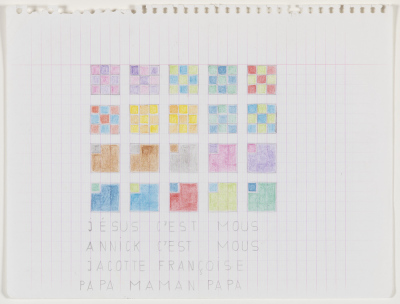 JESUS C'EST MOUS
ANNICK C'EST MOUS
JACOTTE FRANÇOISE
PAPA MAMAN PAPA